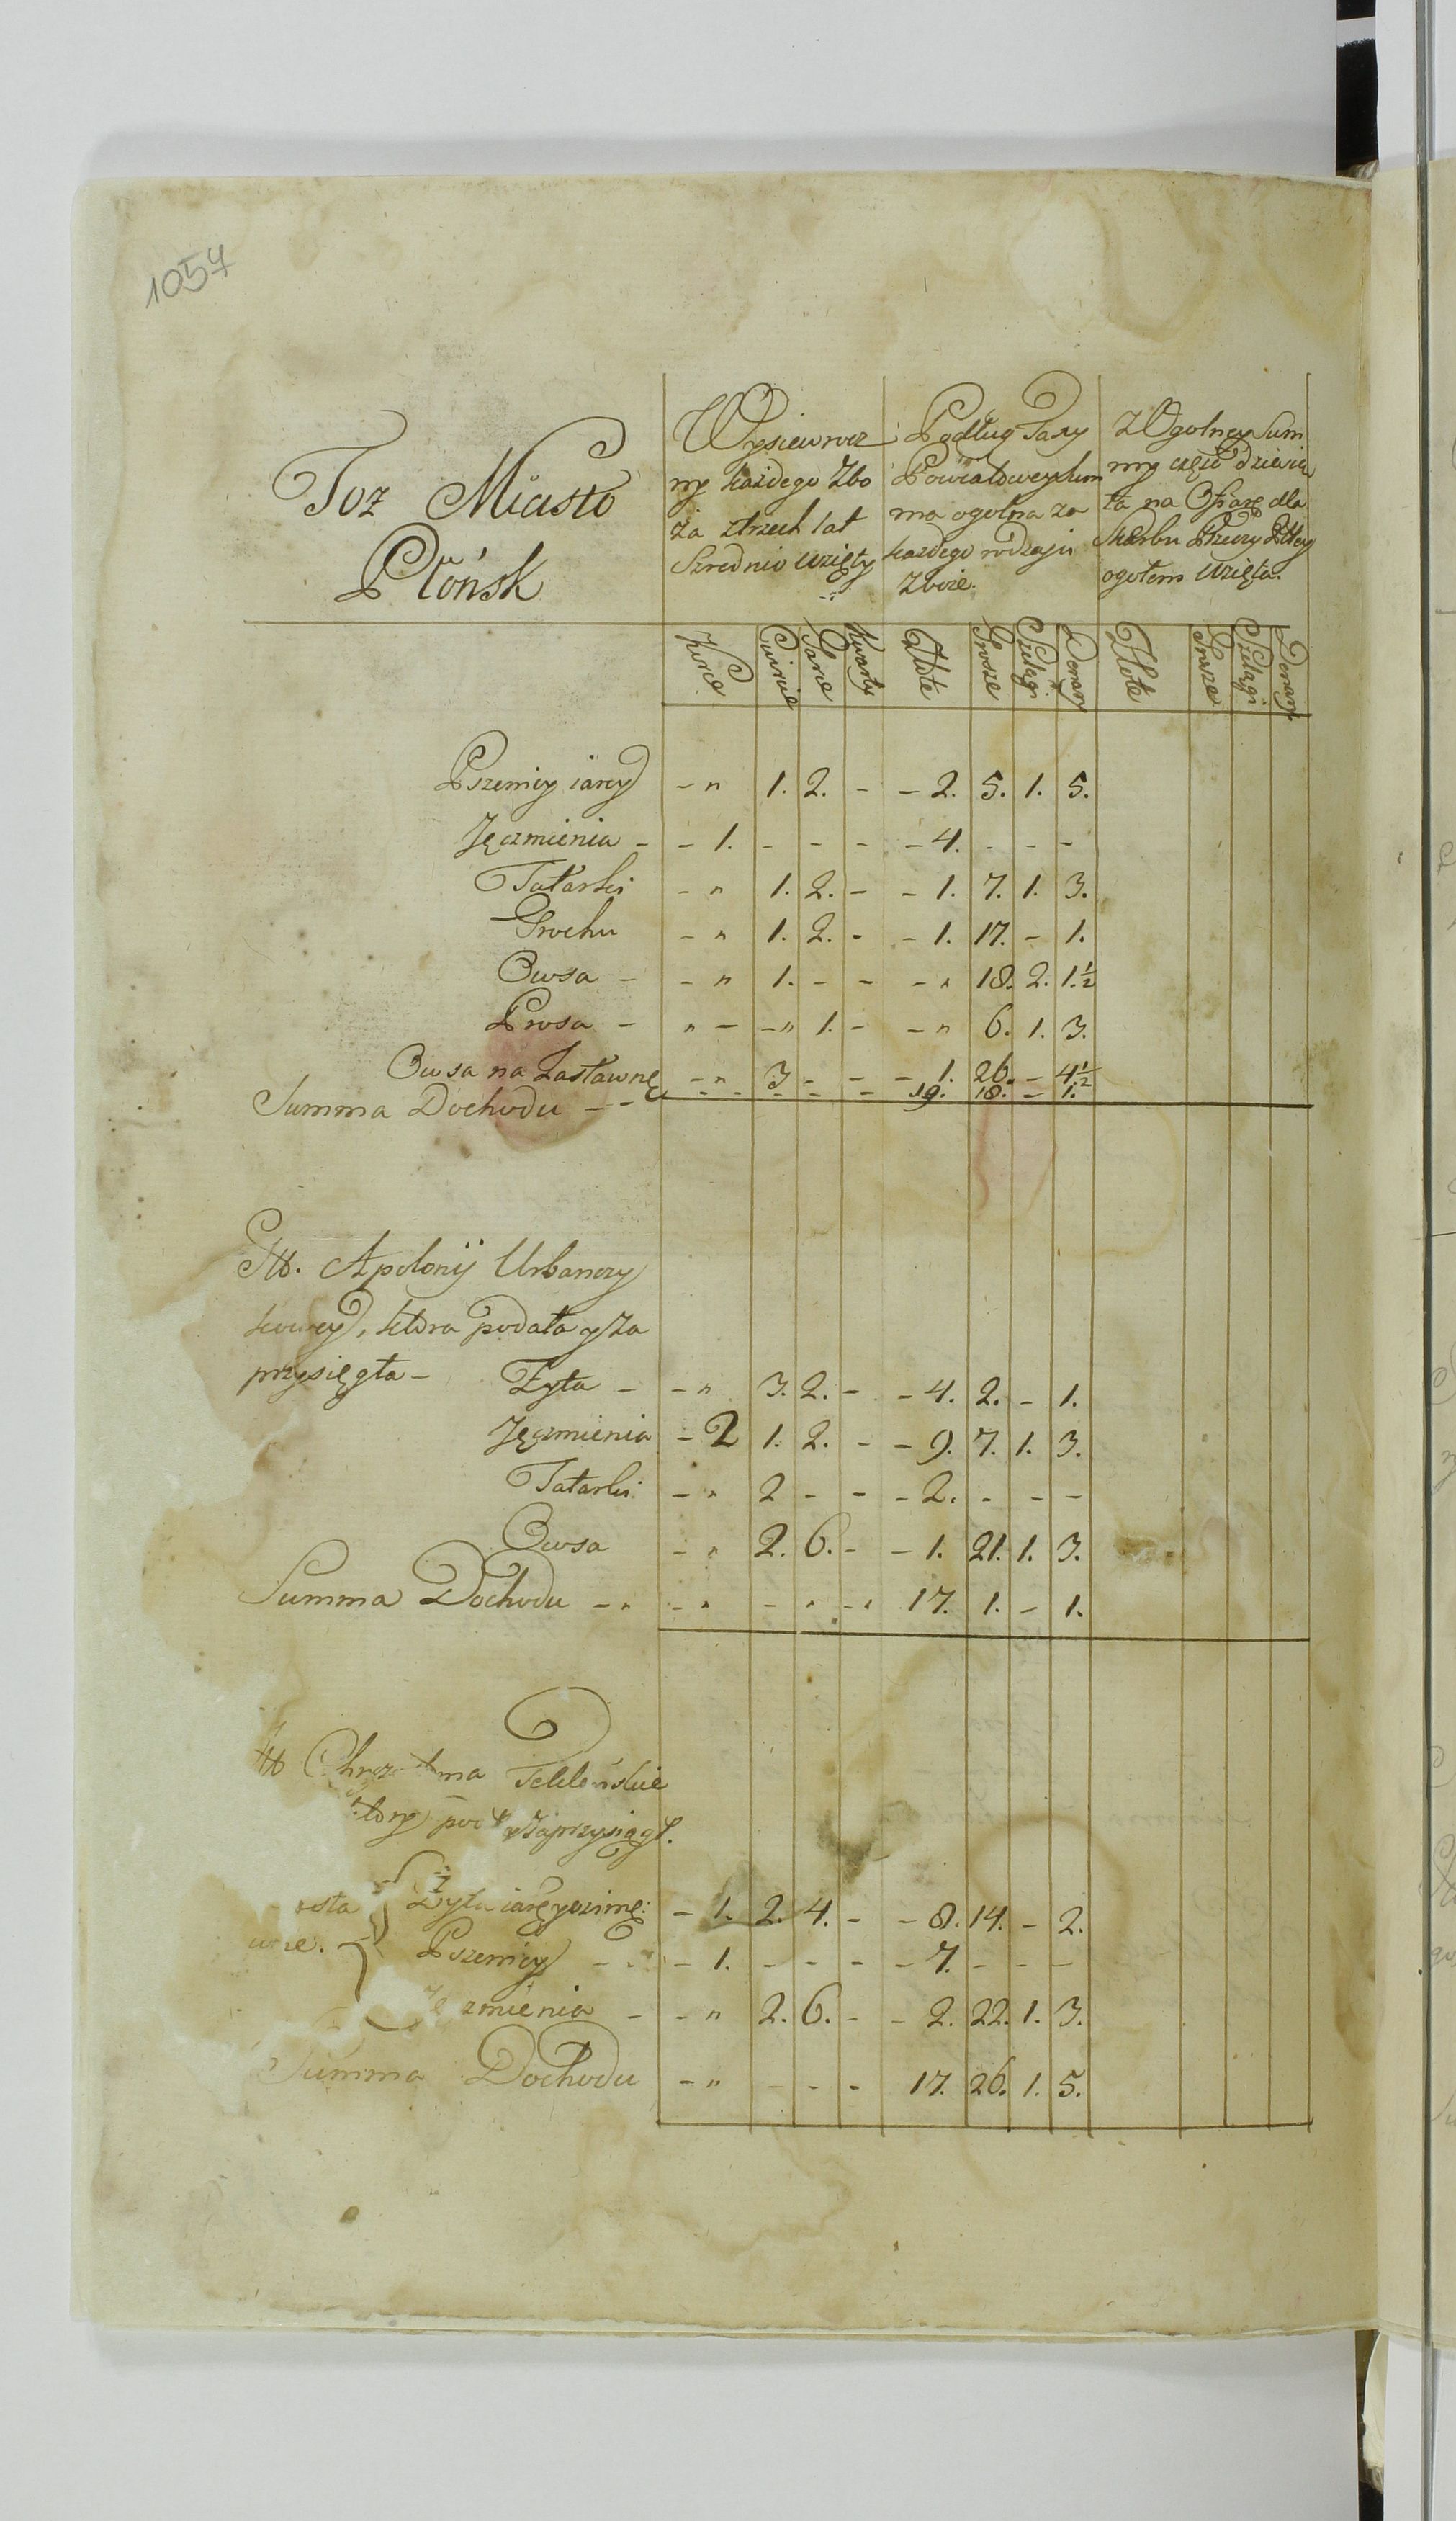 1057
Toz Miasto
Płońsk
Wysiew rocz
ny każdego Zbo
ża z trzech lat
Srzednio wzięty
Podług Taxy
Powiatowey Sum
ma ogolna za
każdego rodzaju
Zboże.
Z Ogolney Sum
my część Dziesią
ta na Ofiarę dla
Skarbu Rzeczy Pttey
ogołem Wzięta.
Korce Cwircie Garce Kwarty Złote Grosze Szelągi Denary Złote Grosze Szelągi Denary
Pszenicy iarey - " 1. 2. - - 2. 5. 1. 5.
Jęczmienia - - 1. - - - - 4. - - -
Tatarki - " 1. 2. - - 1. 7. 1. 3.
Grochu - " 1. 2. - - 1. 17. - 1.
Owsa - - " 1. - - - " 18. 2. 1.½
Prosa - " - - " 1. - - " 6. 1. 3.
Owsa na Zastawnę - " 3 - - - 1. 26. - 4½
Summa Dochodu - - - - - - - 19. 18. - 1.
Apolonij Urbanczy
kowey, ktora podała y za
przysięgła -
Zyta - - " 3. 2. - - 4. 2. - 1.
Jęczmienia - 2 1. 2. - - 9. 7. 1. 3.
Tatarki - " 2 - - - 2. - - -
Owsa - " 2. 6. - - 1. 21. 1. 3.
Summa Dochodu - " - " - " - " 17. 1. - 1.
y zaprzysiągł.
Zyta - 1. 2. 4. - - 8. 14. - 2.
Pszenicy - - 1. - - - - 7. - - -
zmienia - - " 2. 6. - - 2. 22. 1. 3.
Summa Dochodu - " - - - 17. 26. 1. 5.